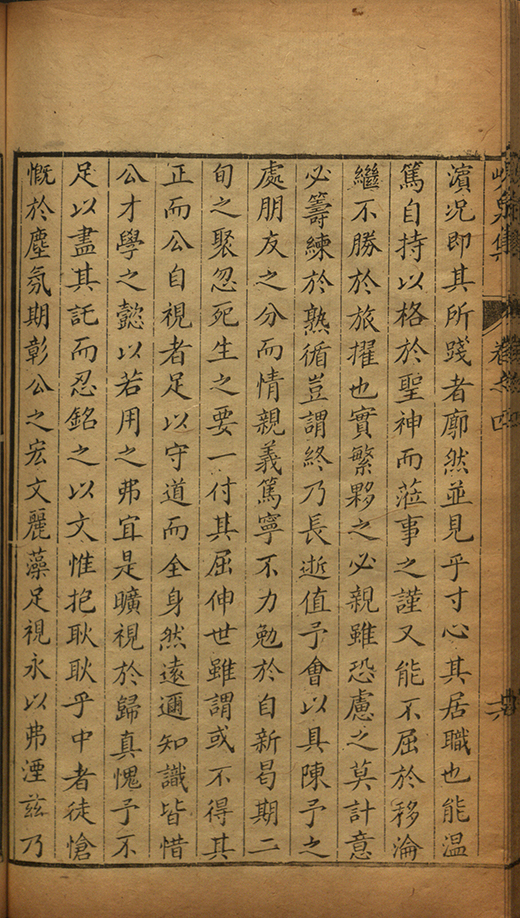 峴泉集 卷之四
濵况即其所踐者廓然並見乎寸心其居職也能温
篤自持以格於聖神而蒞事之謹又能不屈於移淪
繼不勝於旅擢也實繁夥之必親雖恐慮之莫計意
必籌練於熟循豈謂終乃長逝值予會以具陳予之
處朋友之分而情親義篤寧不力勉於自新曷期二
旬之聚忽死生之要一付其屈伸世雖謂或不得其
正而公自視者足以守道而全身然遠邇知識皆惜
公才學之懿以若用之弗宜是曠視於歸真愧予不
足以盡其託而忍銘之以文惟抱耿耿乎中者徒愴
慨於塵氛期彰公之宏文麗藻足視永以弗湮兹乃